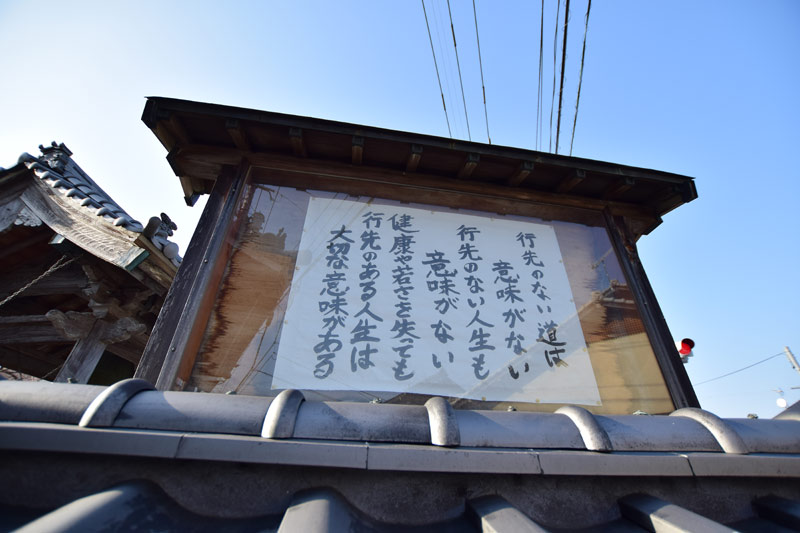 行先のない道は
意味がない
行先のない人生も
意味がない
健康や若さを失っても
行先のある人生は
大切な意味がある